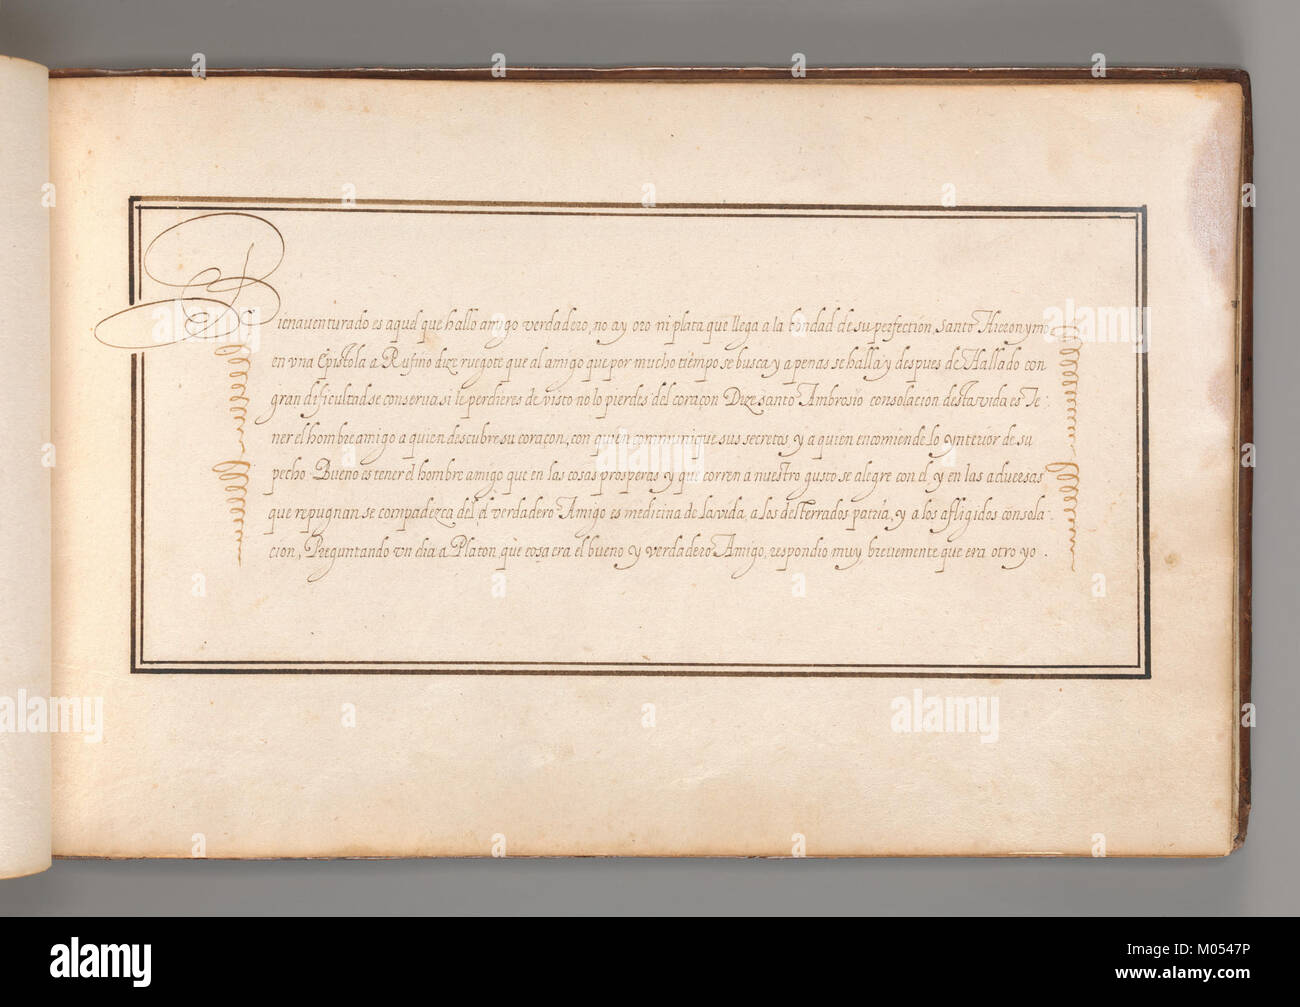 Bienaventurado es aquel que hallo amigo verdadero, no ay oro ni plata que llega a la bondad de su perfection, santo Hieronymo
en vna Epistola a Rufino dize ruegote que al amigo que por mucho tiempo se busca y apenas se halla y despues de Hallado con
gran dificultad se conserva si le perdieres de visto no lo pierdes del coraçon Dize santo Ambrosio consolacion desta vida es Te:
ner el hombre amigo a quien descubre su coraçon, con quien communique sus secretos y a quien encomiende lo ynterior de su
pecho Bueno es tener el hombre amigo que en las cosas prosperas y que corren a nuestro gusto se alegre con el y en las aduersas
que repugnan se compadezca del, el verdadero Amigo es medicina de la vida, a los desterrados patria, y a los afligidos consola:
cion, Preguntando vn dia a Platon, que cosa era el bueno y verdadero Amigo, respondio muy breuemente que era otro yo.
alamy
alamy
alamy
alamy
alamy
alamy
Image ID: M0547P
www.alamy.com